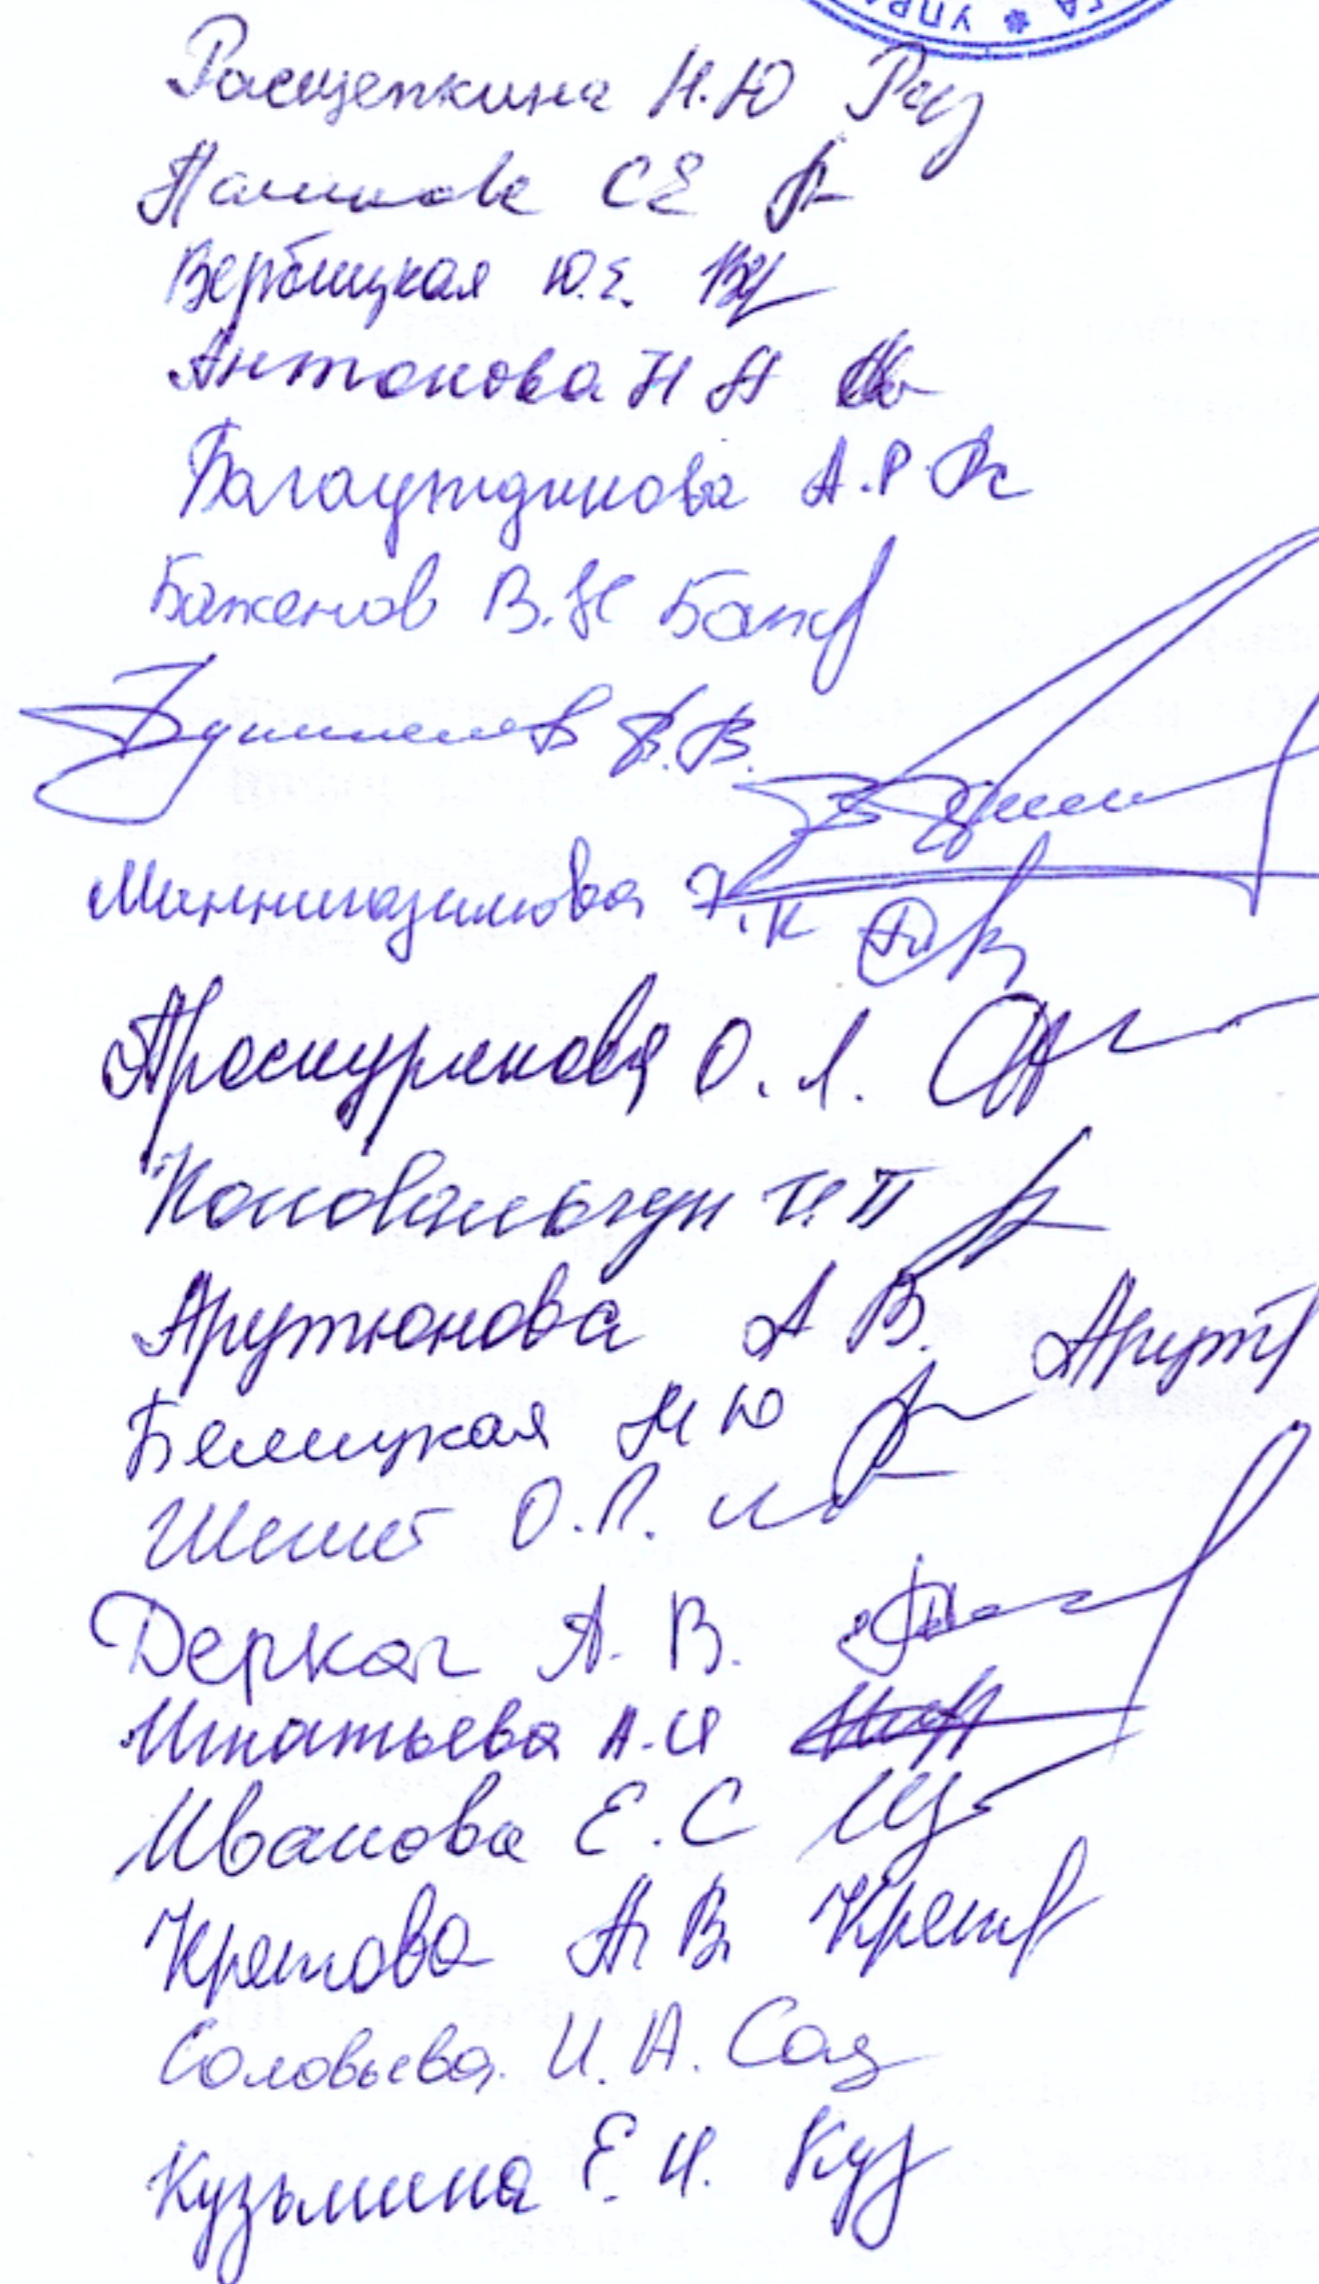 УПРА
ГА *
Расщепкина Н.Ю Рсц
Пашкова СЕ
Вербицкая Ю.Е.
Антонова Н А
Багаутдинова А.Р.
Баженов В.Н Баж
В.В.
Миннигазимова К
Проскурякова О. Л.
Коновальчук П
Арутюнова А В. Арут
Белицкая М Ю
О.П.
Деркач А. В.
Игнатьева А.И
Иванова Е.С
Кретова А.В. Крет
Соловьева И.А. Сол
Кузьмина Е.И. Куз